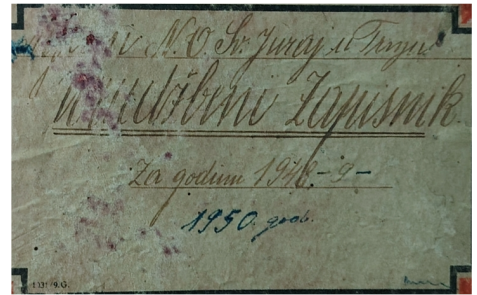 N.O. Sv. Juraj u Trnju
Urudžbeni Zapisnik
Za godinu 1948-9-
1950. god.
1131/9.G.